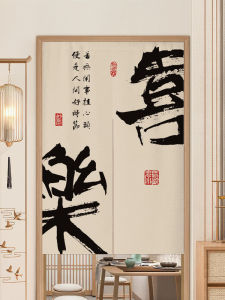 喜
樂
若無閑事挂心頭
便是人間好時節